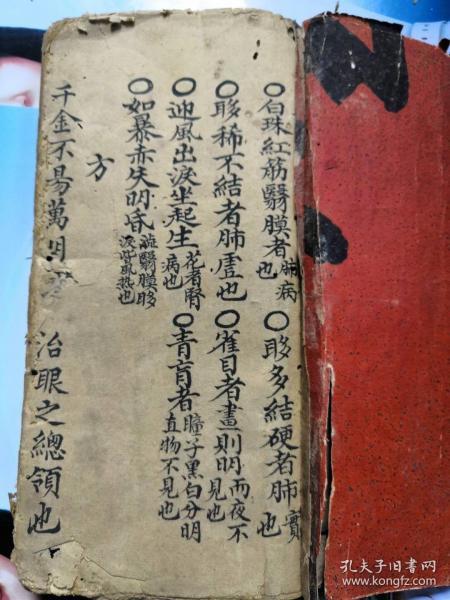 〇白珠紅筋翳膜者肺病也〇眵多結硬者肺實也
〇眵稀不結者肺虛也〇雀目者晝則明而夜不見也
〇迎風出淚坐起生花者腎病也〇青盲者瞳子黑白分明直物不見也
〇如暴赤失明昏澁翳膜眵淚皆風熱也
方
千金不易萬 治眼之總領也
孔夫子旧书网
www.kongfz.com